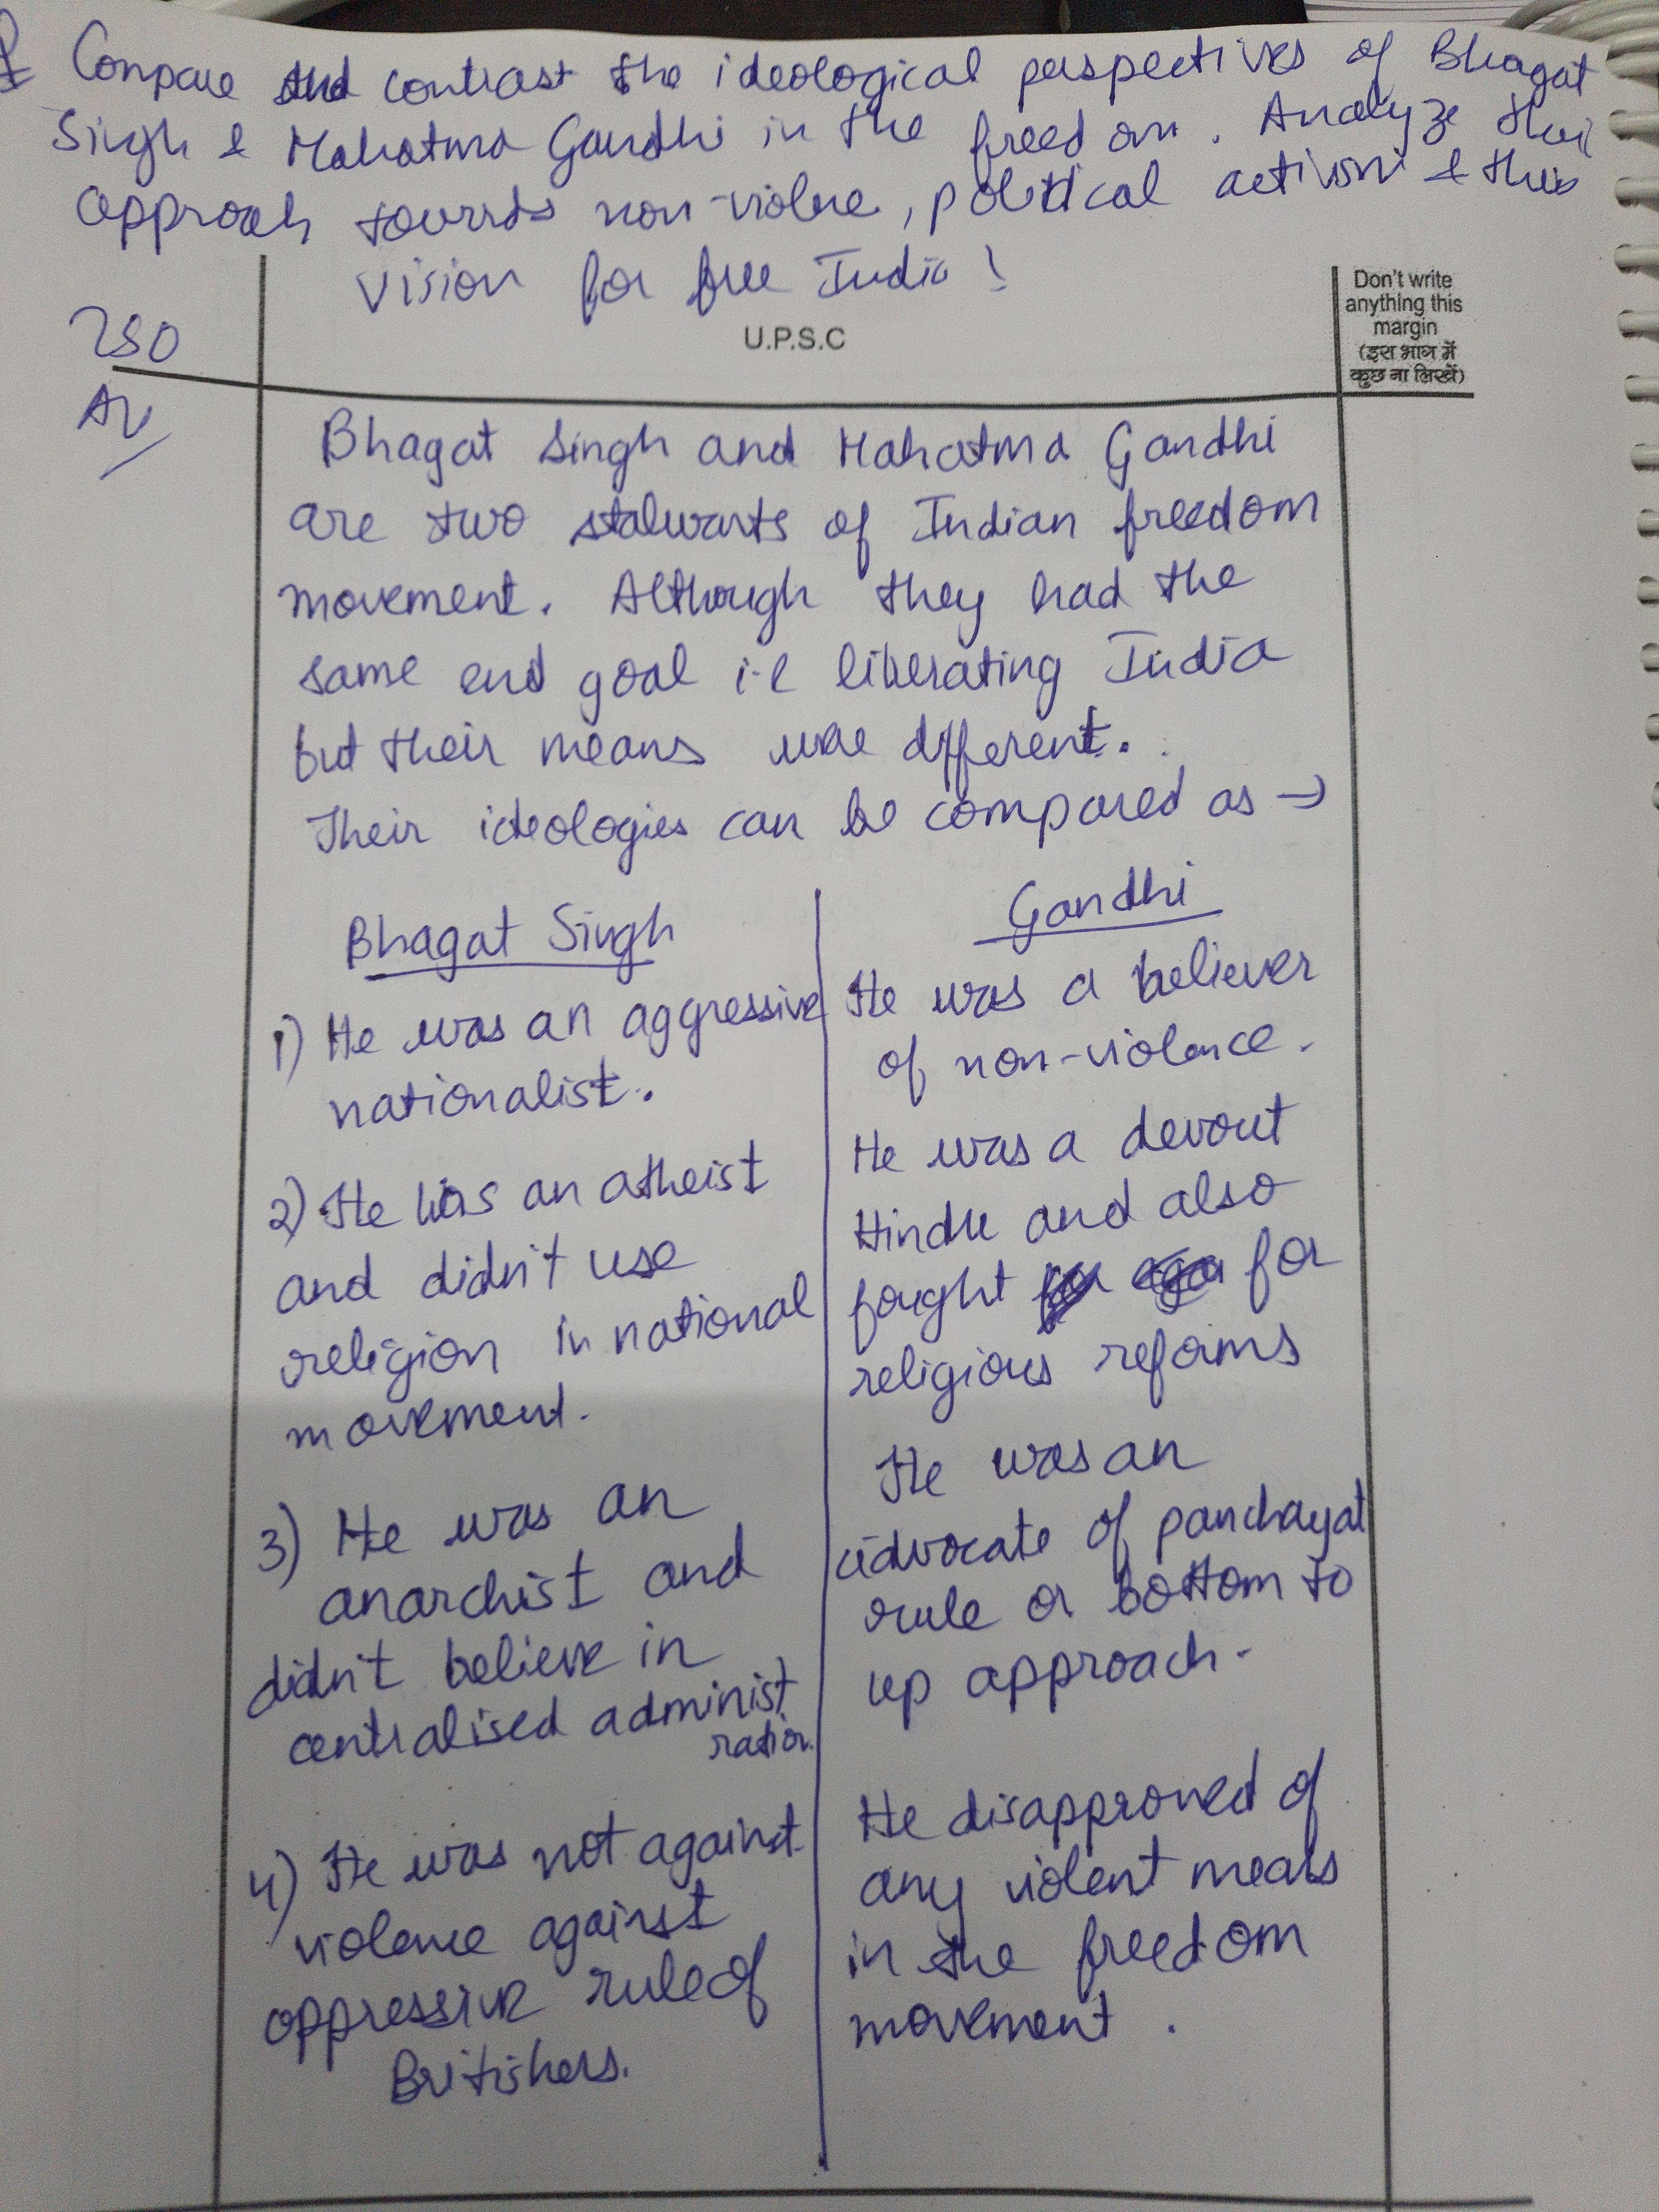 Compare and contrast the ideological perspectives of Bhagat
Singh & Mahatma Gandhi in the freedom. Analyze their
approach towards non-violence, political activism & their
vision for free India !
250
U.P.S.C
Don't write
anything this
margin
(इस भाग में
कुछ ना लिखें)
Bhagat Singh and Mahatma Gandhi
are two stalwarts of Indian freedom
movement. Although they had the
same end goal i.e liberating India
but their means were different.
Their ideologies can be compared as →
Bhagat Singh
1) He was an aggressive
nationalist.
2) He was an atheist
and didn't use
religion in national
movement.
3) He was an
anarchist and
didn't believe in
centralised administ
ration.
4) He was not against
violence against
oppressive rule of
Britishers.
Gandhi
He was a believer
of non-violence.
He was a devout
Hindu and also
fought for
religious reforms
He was an
advocate of panchayat
rule or bottom to
up approach.
He disapproved of
any violent means
in the freedom
movement.